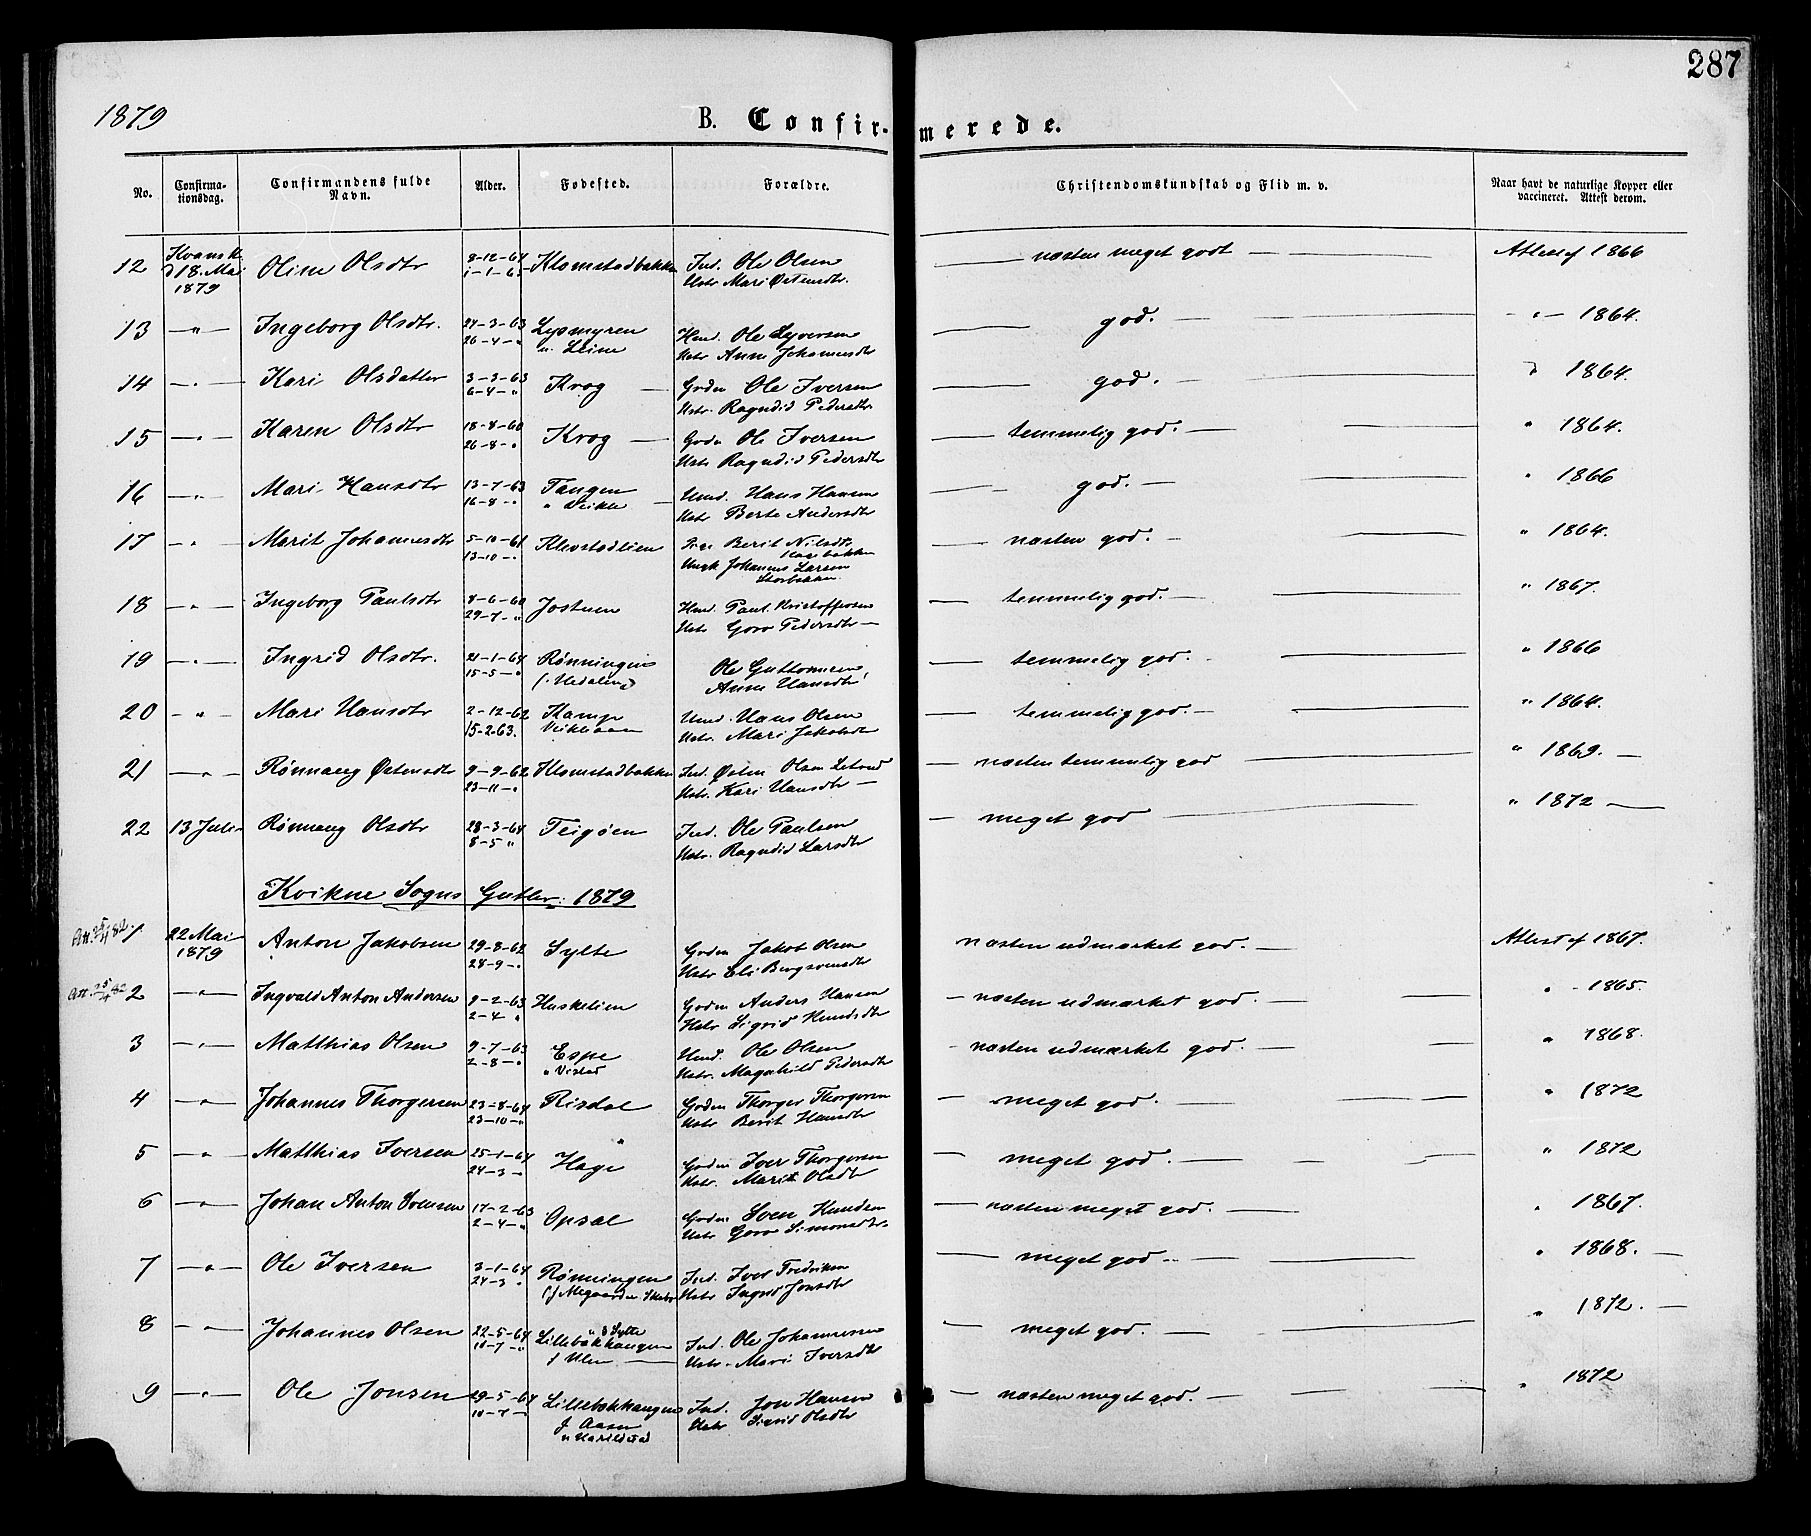 287
1879
B. Confirmerede.
No. Confirmationsdag. Confirmandens fulde Navn. Alder. Fødested. Forældre. Christendomskundskab og Flid m. v. Naar havt de naturlige Kopper eller vaccineret. Attest derom.
12 18. Mai 1879 Oline Olsdtr 8-12-64 1-1-65 Klomstadbakken Ind. Ole Olsen Hstr Mari Østensdtr. næsten meget godt Attest af 1866
13 — " — Ingeborg Olsdtr. 24-3-63 26-4-" Lysmyren u. Leine Hmd. Ole Syversen Hstr Anne Johannesdtr god. — " — 1864.
14 — " — Kari Olsdatter 3-3-63 6-4-" Krog Grdm Ole Iversen Hstr. Ragndid Pedersdtr. god. " 1864.
15 — " — Karen Olsdtr 18-8-60 26-8-" Krog Grdm Ole Iversen Hstr Ragndid Pedersdtr temmelig god. " 1864.
16 — " — Mari Hansdtr 13-7-63 16-8-" Tangen Hmd. Hans Hansen Hstr Berte Andersdtr god. " 1866
17 — " — Marit Johannesdtr 5-10-61 13-10-" Klevstadlien Pige Berit Nilsdtr. Hagebakken Ungk Johannes Larsen Storbakken. næsten god. " 1864.
18 — " — Ingeborg Paulsdtr 8-6-60 29-7-" Jostuen Hmd. Paul Kristoffersen Hstr Goro Pedersdtr temmelig god. " 1867.
19 — " — Ingrid Olsdtr. 21-1-64 15-5-" Rønningen Ole Guttormsen Anne Hansdtr temmelig god. " 1866
20 — " — Mari Hansdtr 2-12-62 15-2-63. Kampe Hmd. Hans Olsen Hstr. Mari Jakobsdtr temmelig god. " 1864.
21 — " — Rønnaug Østensdtr 9-9-62 23-11-" Klomstadbakken Ind. Østen Olsen Hstr. Kari Hansdtr næsten temmelig god " 1869.
22 13 Juli Rønnaug Olsdtr 28-3-64 8-5 " Teigøen Ind. Ole Paulsen Hstr. Ragndid Larsdtr meget god " 1872
Kvikne Sogns Gutter: 1879
1 22 Mai 1879 Anton Jakobsen 29-8-62 28-9-" Sylte Grdm Jakob Olsen Hstr Eli Bergsvensdtr næsten udmærket god. Attest af 1867.
2 — " — Ingvald Anton Andersen 9-2-63 2-4 " Huskelien Grdm Anders Hansen Hstr Sigrid Hansdtr næsten udmærket god. " 1865.
3 — " — Matthias Olsen 9-7-63 2-8-" Espe u Vistad Hmd. Ole Olsen Hstr. Magnhild Pedersdtr næsten udmærket god. " 1868.
4 — " — Johannes Thorgersen 23-8-64 23-10-" Risdal Grdm Thorger Thorgersen Hstr Berit Hansdtr meget god. " 1872
5 — " — Matthias Iversen 25-1-64 24-3-" Hage Grdm Iver Thorgersen Hstr. Marit Olsdtr meget god. " 1872
6 — " — Johan Anton Svensen 17-2-63 2-4-" Opsal Grdm Sven Knudsen Hstr Goro Simonsdtr. næsten meget god. " 1867.
7 — " — Ole Iversen 3-1-64 24-3 " Rønningen Ind. Iver Fredriksen Hstr Ingrid Jonsdtr meget god. " 1868.
8 — " — Johannes Olsen 22-5-64 10-7-" Lillebækhaugen Ind. Ole Johannessen Hstr. Mari Iversdtr meget god. " 1872.
9 — " — Ole Jonsen 29-5-64 10-7-" Lillebækhaugen u Harildstad Ind. Jon Hansen Hstr Sigrid Olsdtr næsten meget god. " 1872